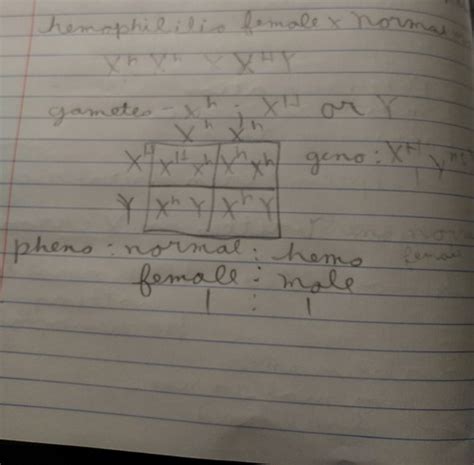 hemophililic female x normal
X^h X^h x X^H Y
gametes - X^h ; X^H or Y
X^h X^h
X^H X^H X^h X^h X^h geno : X^H
Y X^h Y X^h Y
pheno : normal : hemo
female : male
1 : 1